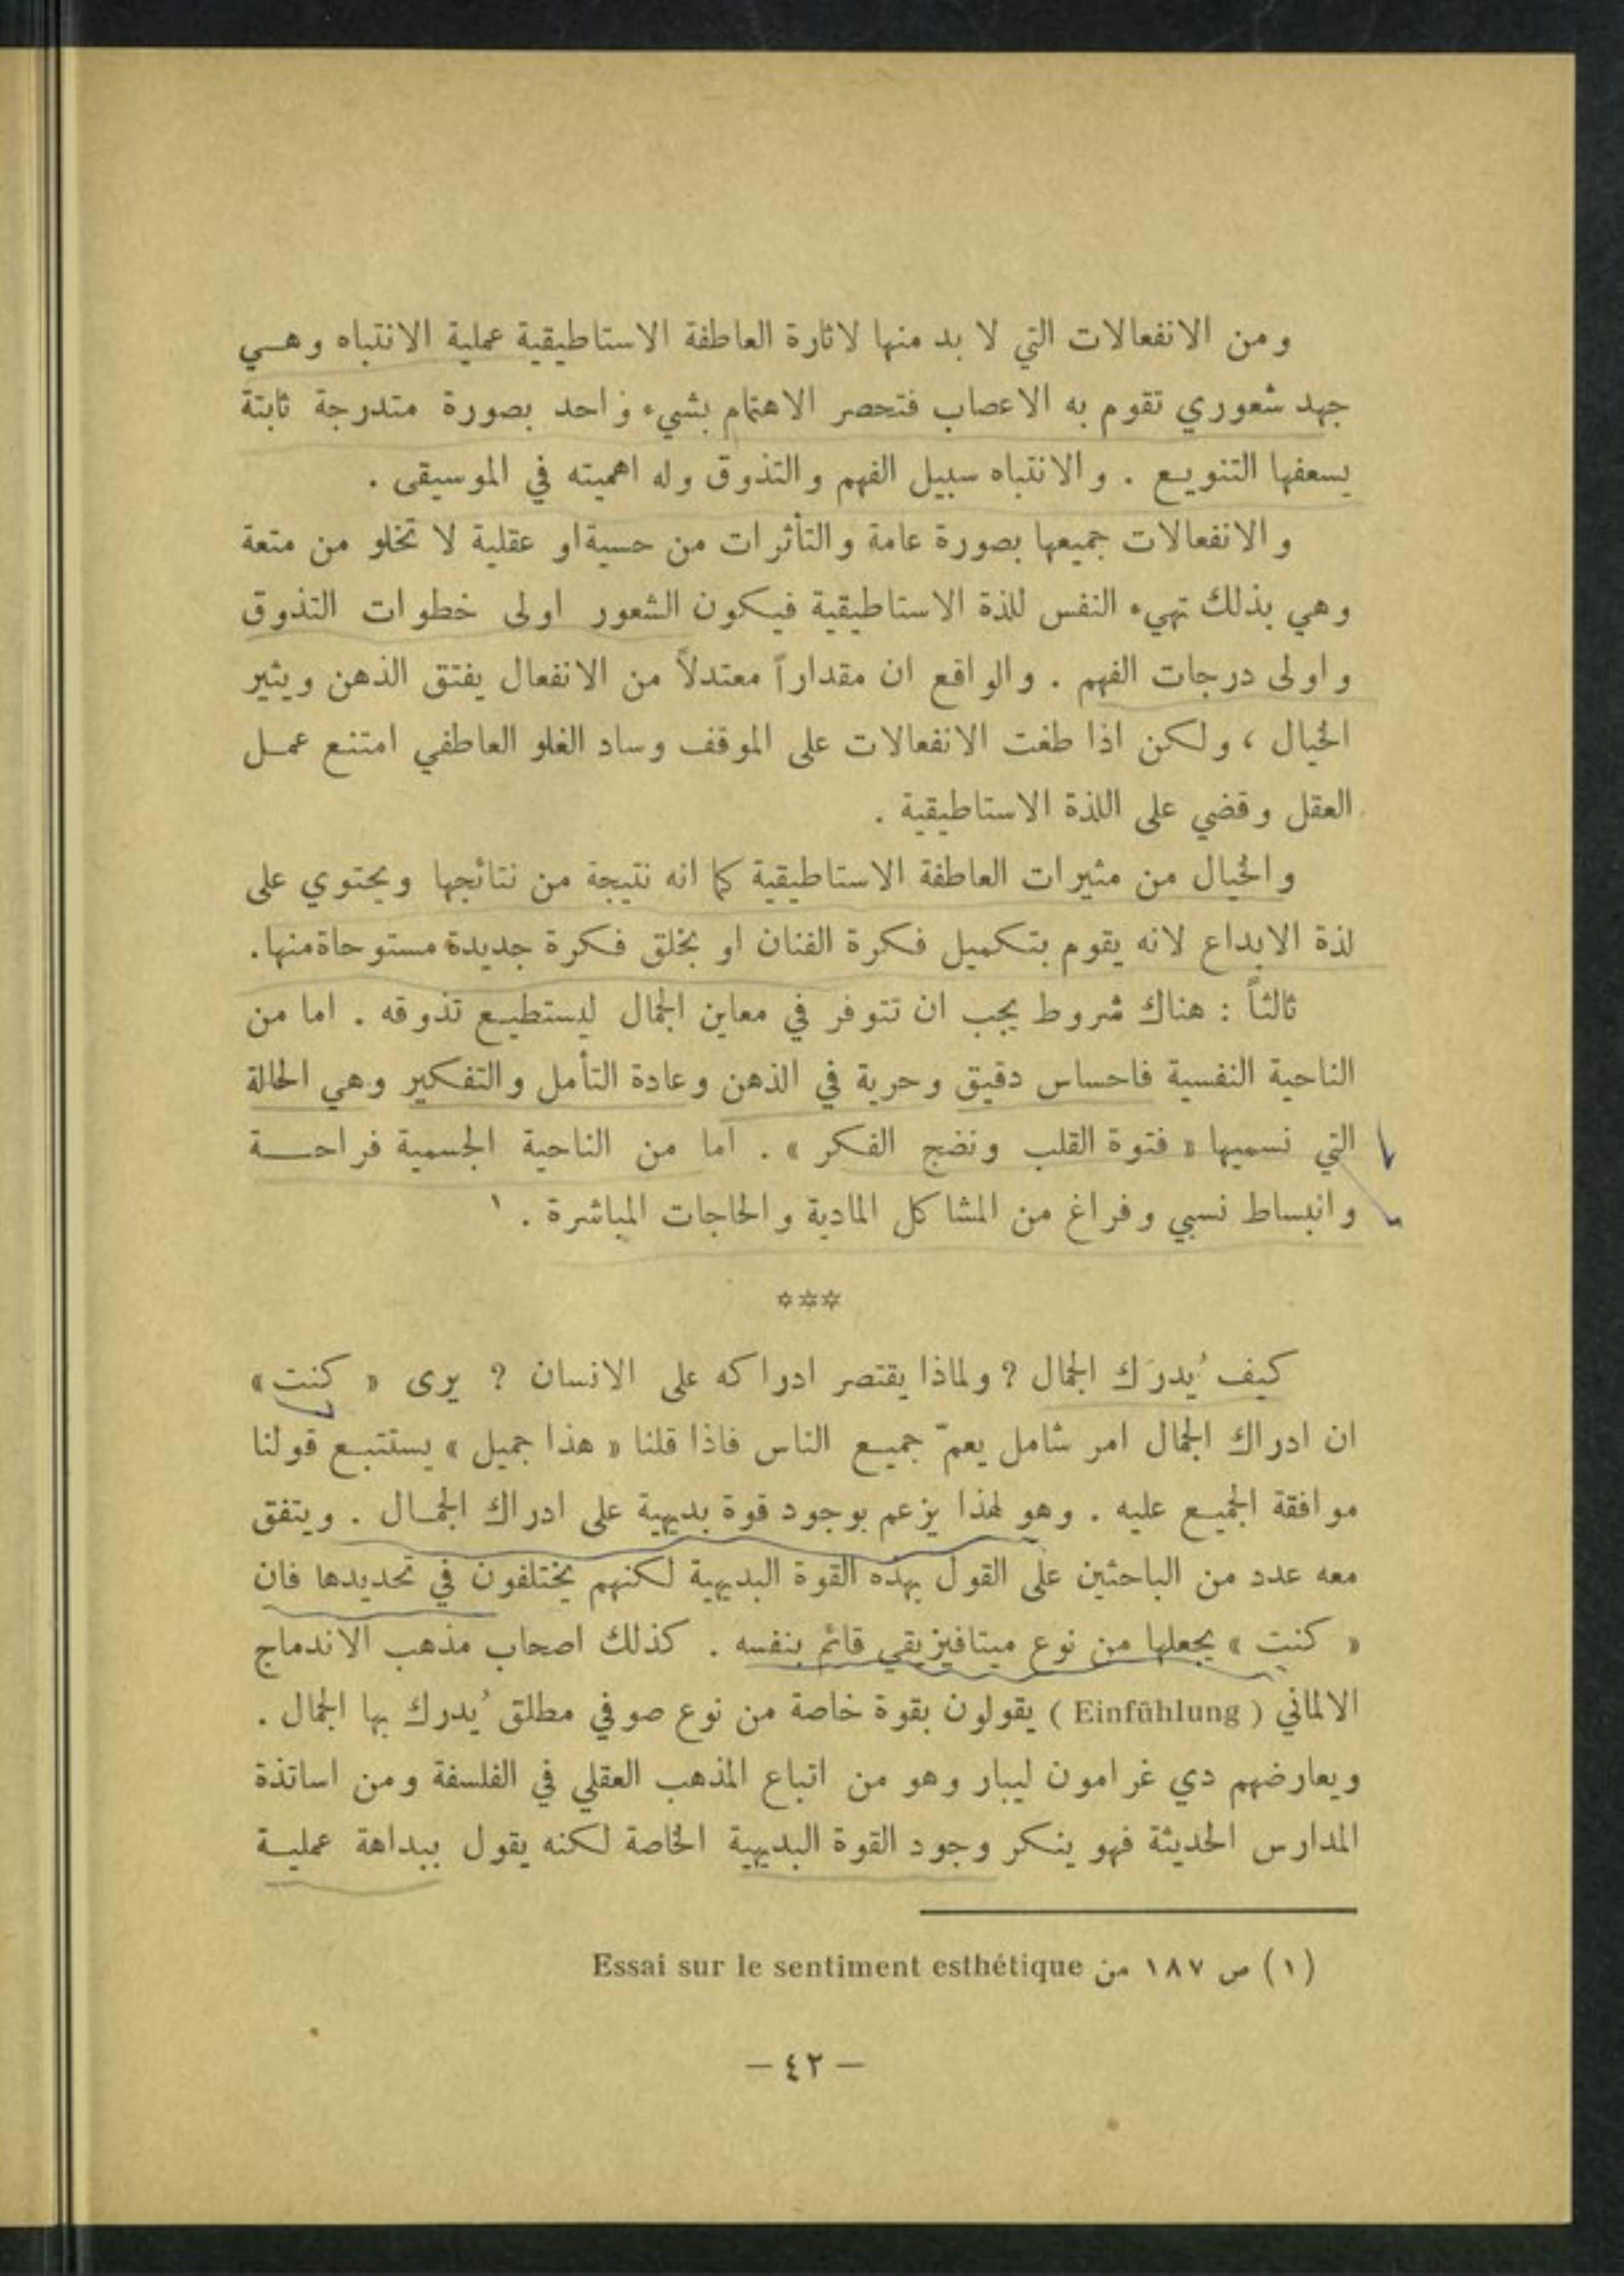 ومن الانفعالات التي لا بد منها لاثارة العاطفة الاستاطيقية عملية الانتباه وهـي
جهد شعوري تقوم به الاعصاب فتحصر الاهتمام بشيء واحد بصورة متدرجة ثابتة
يسعفها التنويـع . والانتباه سبيل الفهم والتذوق وله اهميته في الموسيقى .
والانفعالات جميعها بصورة عامة والتأثرات من حسية او عقلية لا تخلو من متعة
وهي بذلك تهيء النفس للذة الاستاطيقية فيكون الشعور اولى خطوات التذوق
واولى درجات الفهم . والواقع ان مقداراً معتدلاً من الانفعال يفتق الذهن ويثير
الخيال ، ولكن اذا طغت الانفعالات على الموقف وساد الغلو العاطفي امتنع عمـل
العقل وقضي على اللذة الاستاطيقية .
والخيال من مثيرات العاطفة الاستاطيقية كما انه نتيجة من نتائجها ويحتوي على
لذة الابداع لانه يقوم بتكميل فكرة الفنان او بخلق فكرة جديدة مستوحاة منها.
ثالثاً : هناك شروط يجب ان تتوفر في معاين الجمال ليستطيـع تذوقه . اما من
الناحية النفسية فاحساس دقيق وحرية في الذهن وعادة التأمل والتفكير وهي الحالة
التي نسميها « فتوة القلب ونضج الفكر » . اما من الناحية الجسمية فراحـــة
وانبساط نسبي وفراغ من المشاكل المادية والحاجات المباشرة . ١
***
كيف يُدرَك الجمال ? ولماذا يقتصر ادراكه على الانسان ? يرى « كنت »
ان ادراك الجمال امر شامل يعمّ جميـع الناس فاذا قلنا « هذا جميل » يستتبـع قولنا
موافقة الجميـع عليه . وهو لهذا يزعم بوجود قوة بديهية على ادراك الجمـال . ويتفق
معه عدد من الباحثين على القول بهذه القوة البديهية لكنهم يختلفون في تحديدها فان
« كنت » يجعلها من نوع ميتافيزيقي قائم بنفسه . كذلك اصحاب مذهب الاندماج
الالماني ( Einfühlung ) يقولون بقوة خاصة من نوع صوفي مطلق يُدرك بها الجمال .
ويعارضهم دي غرامون ليبار وهو من اتباع المذهب العقلي في الفلسفة ومن اساتذة
المدارس الحديثة فهو ينكر وجود القوة البديهية الخاصة لكنه يقول ببداهة عمليـة
(١) ص ١٨٧ من Essai sur le sentiment esthétique
— ٤٢ —